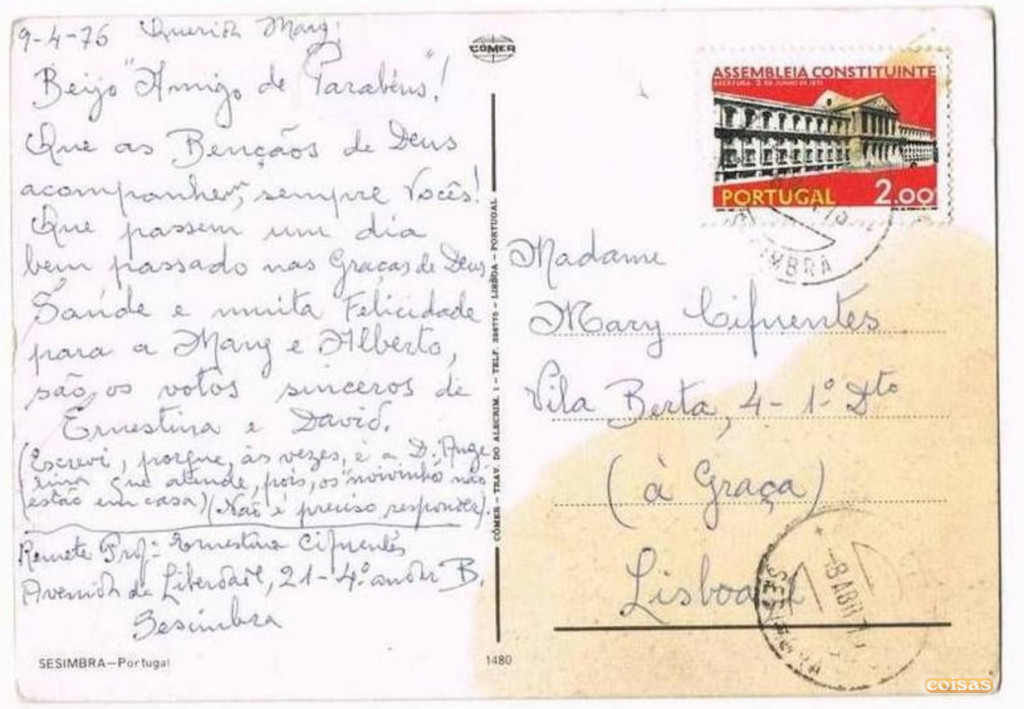 9-4-76 Querida Mary!
Beijo "Amigo de Parabéns"!
Que as Bençãos de Deus
acompanhem, sempre Vocês!
Que passem um dia
bem passado nas Graças de Deus
Saúde e muita Felicidade
para a Mary e Alberto,
são, os votos sinceros de
Ernestina e David.
(Escrevi, porque, às vezes, é a D. Ange
lina que atende, pois, os "noivinhos" não
estão em casa) (Não é preciso responder).
Remete Prof.ª Ernestina Cifuentes
Avenida da Liberdade, 21-4º andar B.
Sesimbra
SESIMBRA-Portugal
1480
CÓMER
CÓMER - TRAV. DO ALECRIM, 1 - TELF. 328775 - LISBOA - PORTUGAL
ASSEMBLEIA CONSTITUINTE
ABERTURA 2 DE JUNHO DE 1975
PORTUGAL 2.00
SIMBRA
Madame
Mary Cifuentes
Vila Berta, 4-1º Dto
(à Graça)
Lisboa
-8 ABR 7
SESIMBRA
coisas